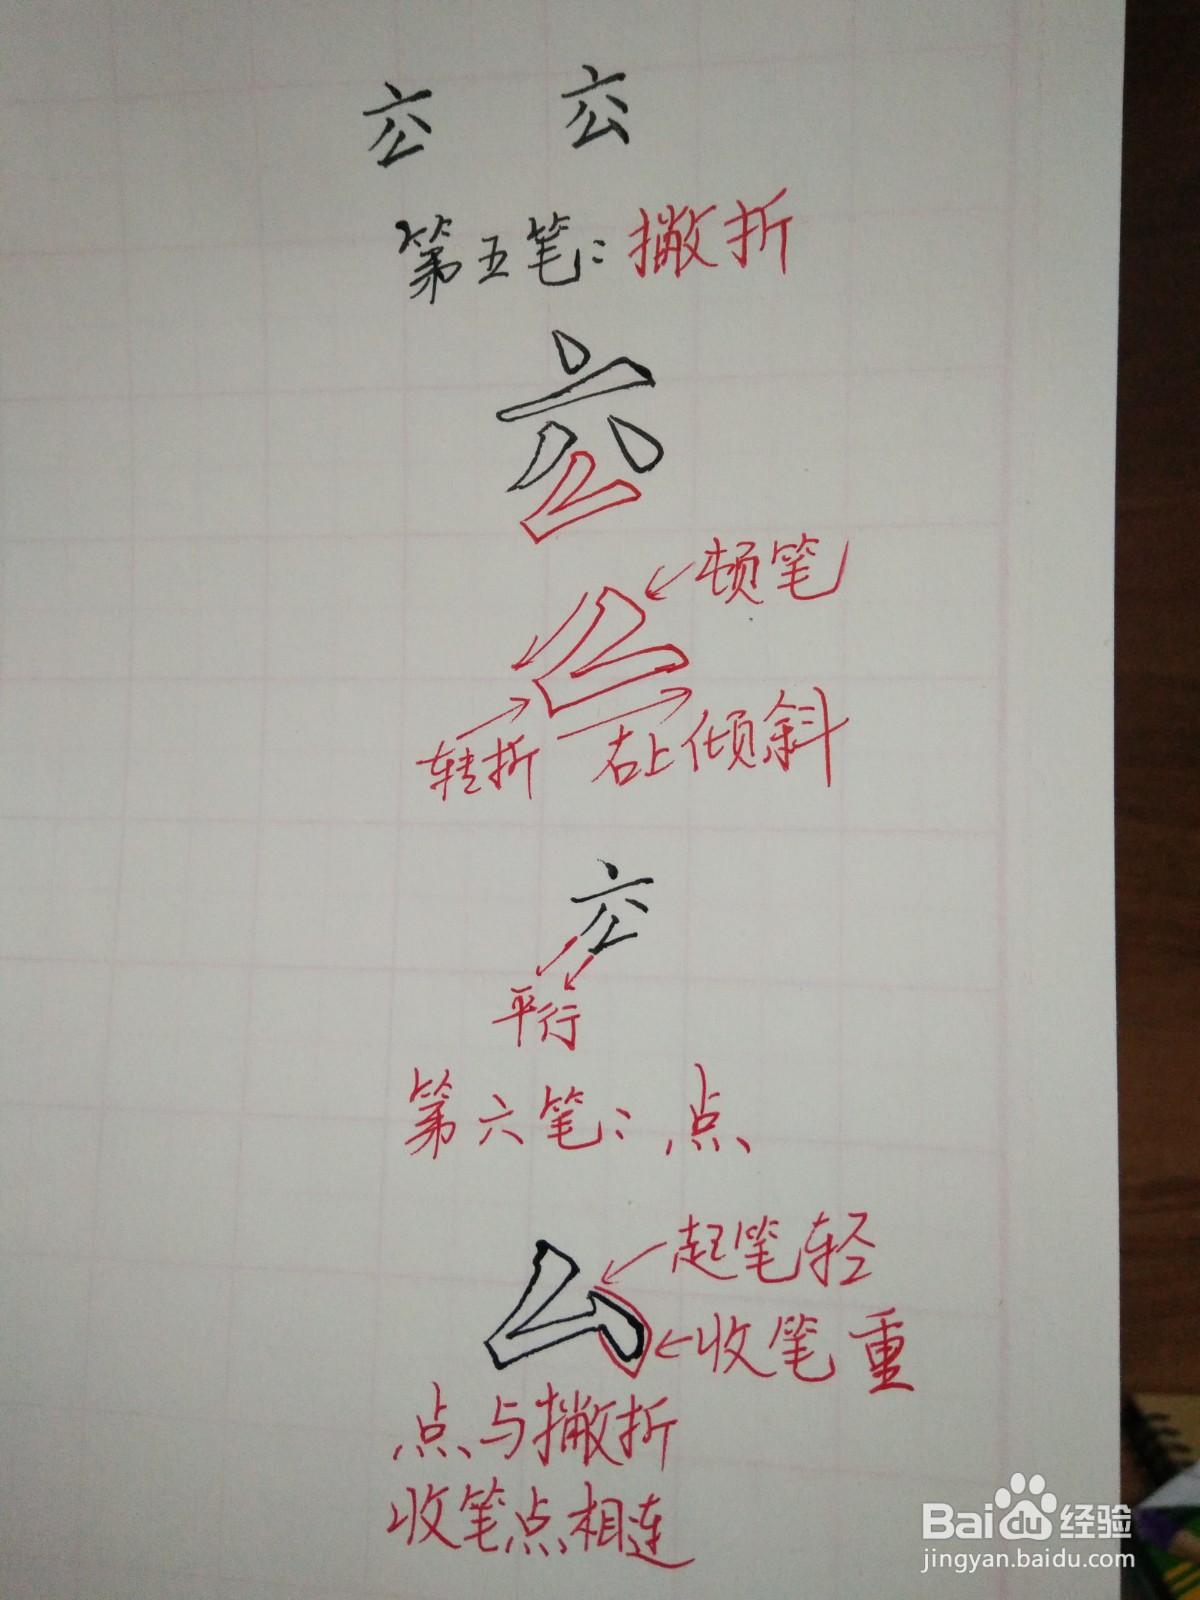 第五笔：撇折
顿笔
转折 右上倾斜
平行
第六笔：点
起笔轻
收笔重
点与撇折
收笔点相连
Baidu经验
jingyan.baidu.com